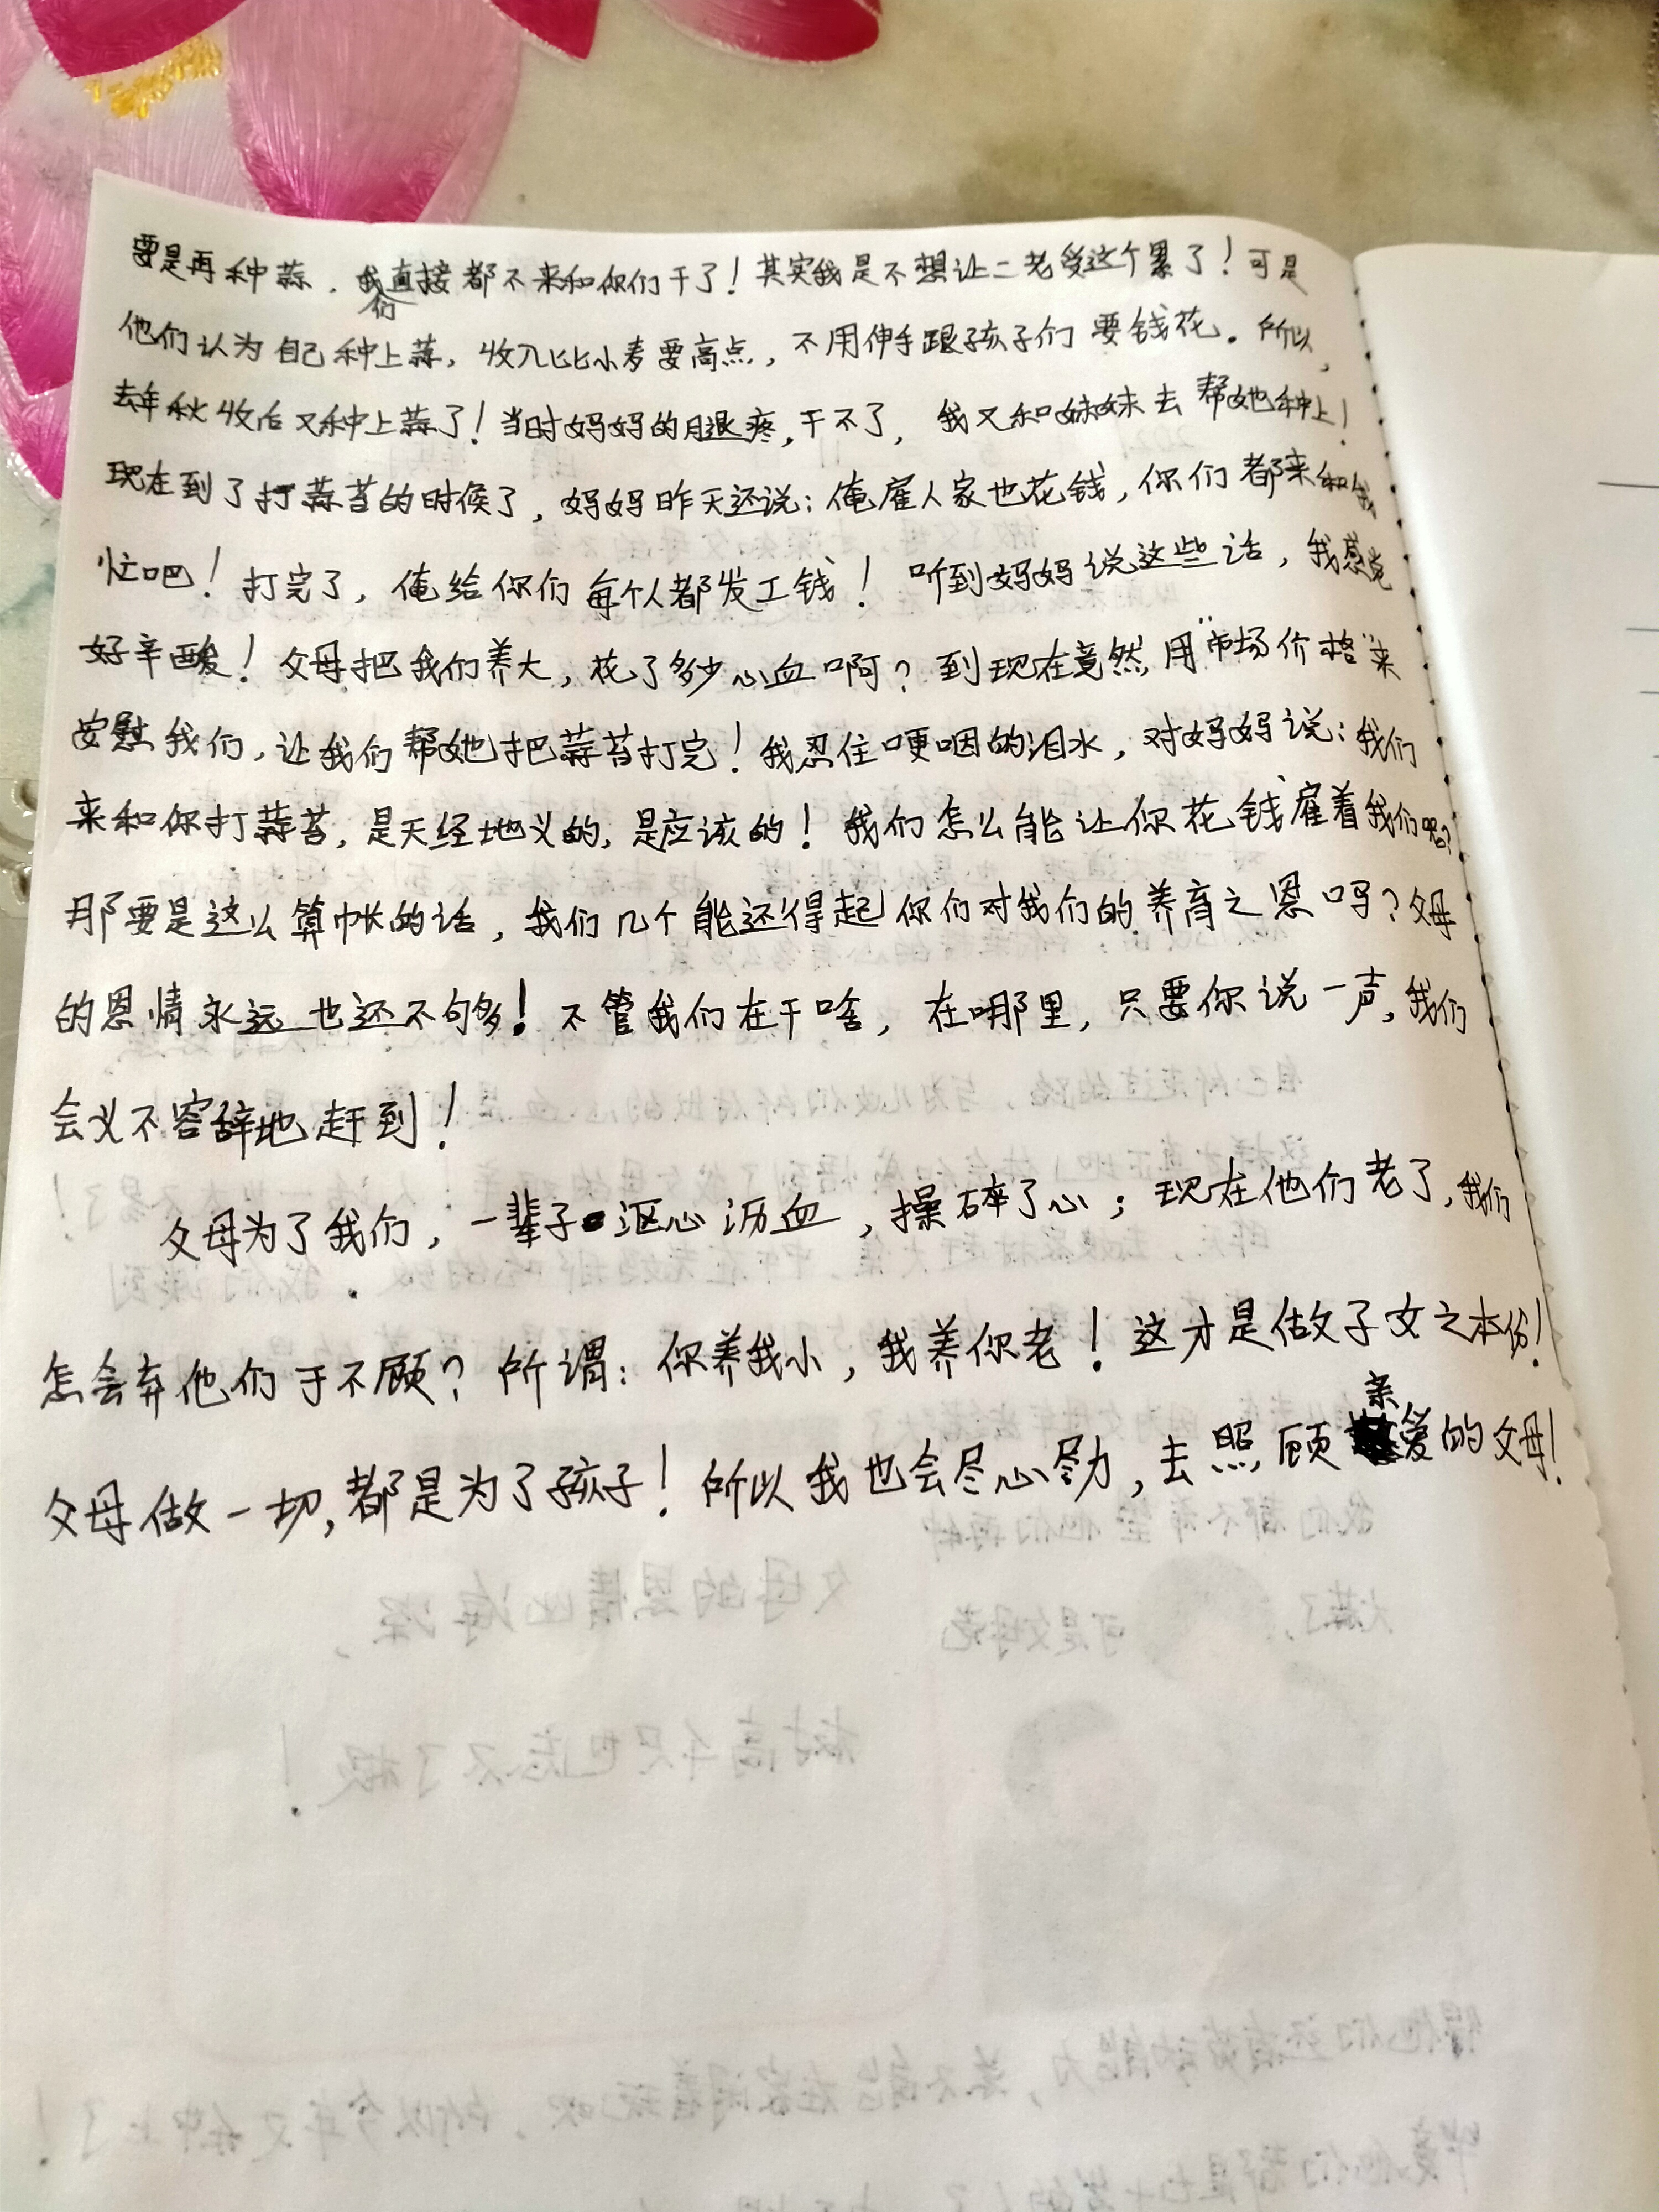 要是再种蒜，我们直接都不来和你们干了！其实我是不想让二老受这个累了！可是
他们认为自己种上蒜，收入比小麦要高点，不用伸手跟孩子们要钱花。所以，
去年秋收后又种上蒜了！当时妈妈的腿疼，干不了，我又和妹妹去帮她种上！
现在到了打蒜苔的时候了，妈妈昨天还说：俺雇人家也花钱，你们都来和我
忙吧！打完了，俺给你们每个人都发工钱！听到妈妈说这些话，我感觉
好辛酸！父母把我们养大，花了多少心血啊？到现在竟然用“市场价格”来
安慰我们，让我们帮她把蒜苔打完！我忍住哽咽的泪水，对妈妈说：我们
来和你打蒜苔，是天经地义的，是应该的！我们怎么能让你花钱雇着我们呢？
那要是这么算帐的话，我们几个能还得起你们对我们的养育之恩吗？父母
的恩情永远也还不够！不管我们在干啥，在哪里，只要你说一声，我们
会义不容辞地赶到！
父母为了我们，一辈子沤心沥血，操碎了心；现在他们老了，我们
怎会弃他们于不顾？所谓：你养我小，我养你老！这才是做子女之本份！
父母做一切，都是为了孩子！所以我也会尽心尽力，去照顾亲爱的父母！